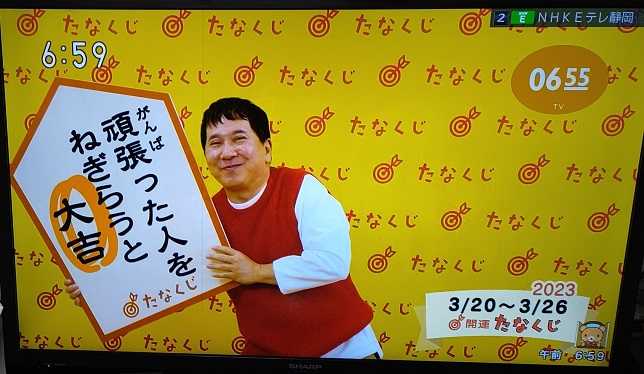 2 Eテレ NHKEテレ静岡
6:59
0655
TV
がんば
頑張った人を
ねぎらうと
大吉
たなくじ
2023
3/20～3/26
開運たなくじ
午前 6:59
SHARP